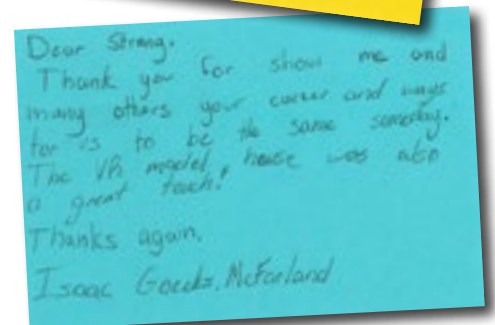 Dear Strang.
Thank you for show me and
many others your career and ways
for us to be the same someday.
The VR model house was also
a great touch!
Thanks again,
Isaac McFarland